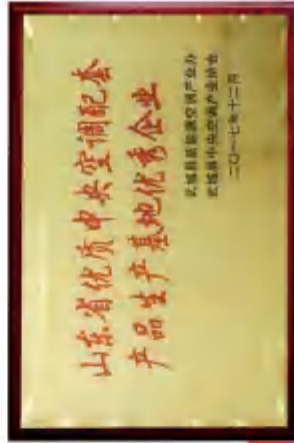 山东省优质中央空调配套
产品生产基地优秀企业
武城县新能源空调产业办
武城县中央空调产业协会
二〇一七年十二月